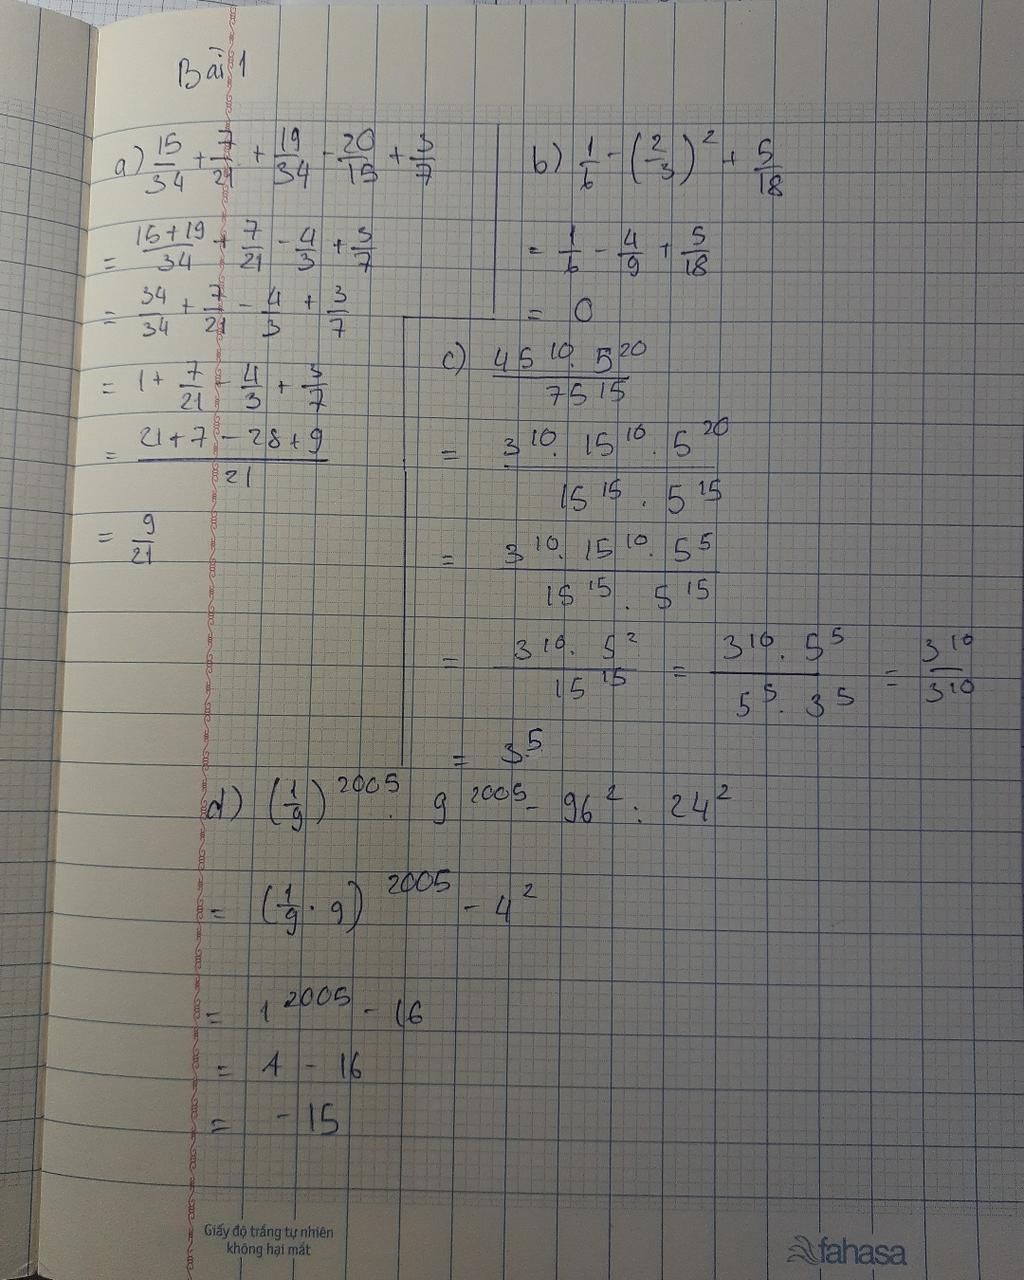 Bài 1
a) 15/34 + 7/21 + 19/34 - 20/15 + 3/7
= (15+19)/34 + 7/21 - 4/3 + 3/7
= 34/34 + 7/21 - 4/3 + 3/7
= 1 + 7/21 - 4/3 + 3/7
= (21 + 7 - 28 + 9)/21
= 9/21
b) 1/6 - (2/3)² + 5/18
= 1/6 - 4/9 + 5/18
= 0
c) (45¹⁰ . 5²⁰)/75¹⁵
= (3¹⁰ . 15¹⁰ . 5²⁰)/(15¹⁵ . 5¹⁵)
= (3¹⁰ . 15¹⁰ . 5⁵)/(15¹⁵ . 5¹⁵)
= (3¹⁰ . 5²)/15¹⁵ = (3¹⁰ . 5⁵)/(5⁵ . 3⁵) = 3¹⁰/3¹⁰
= 3⁵
d) (1/9)²⁰⁰⁵ . 9²⁰⁰⁵ - 96² : 24²
= (1/9 . 9)²⁰⁰⁵ - 4²
= 1²⁰⁰⁵ - 16
= 1 - 16
= - 15
Giấy độ trắng tự nhiên
không hại mắt
fahasa